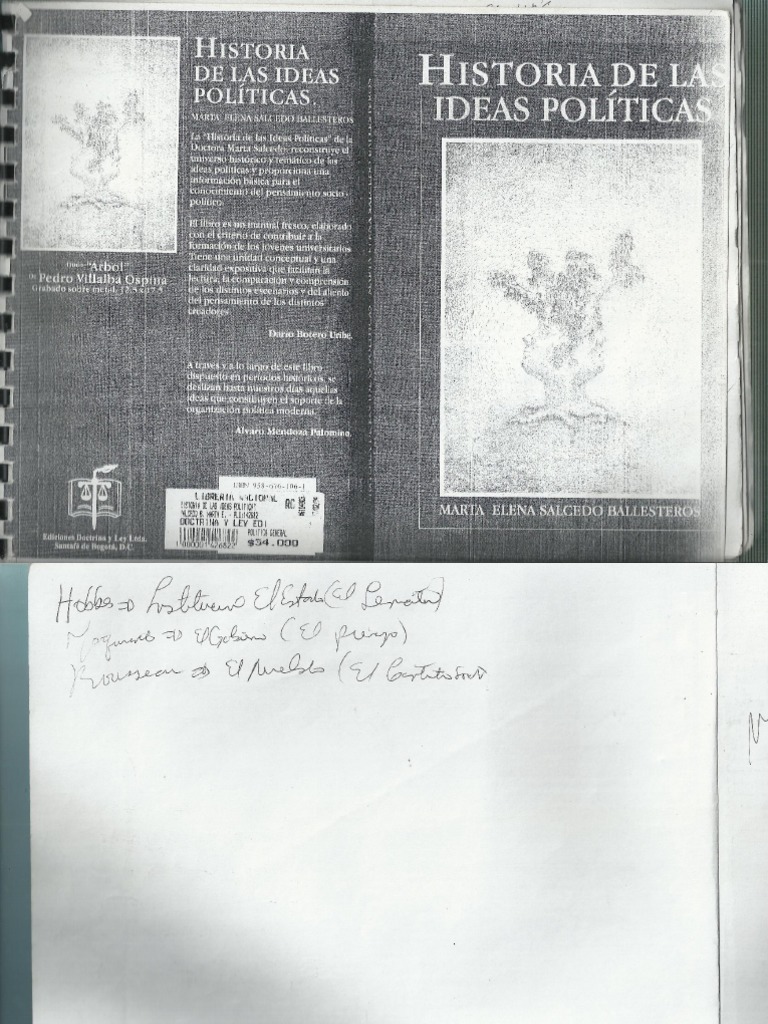 HISTORIA
DE LAS IDEAS
POLÍTICAS.
MARTA ELENA SALCEDO BALLESTEROS
La "Historia de las Ideas Políticas" de la
Doctora Marta Salcedo, reconstruye el
universo histórico y temático de las
ideas políticas y proporciona una
información básica para el
conocimiento del pensamiento socio-
político.
El libro es un manual fresco, elaborado
con el criterio de contribuir a la
formación de los jóvenes universitarios
Tiene una unidad conceptual y una
claridad expositiva que facilitan la
lectura, la comparación y comprensión
de los distintos escenarios y del aliento
del pensamiento de los distintos
creadores.
Darío Botero Uribe.
A través y a lo largo de este libro
dispuesto en períodos históricos, se
deslizan hasta nuestros días aquellas
ideas que constituyen el soporte de la
organización política moderna.
Alvaro Mendoza Palomino.
"Arbol"
De Pedro Villalba Ospina
Grabado sobre metal, 12.5 x 17.5
Ediciones Doctrina y Ley Ltda.
Santafé de Bogotá, D.C.
ISBN 958-676-106-1
LIBRERIA NACIONAL
DOCTRINA Y LEY EDI
POLITICA GENERAL
$54.000
HISTORIA DE LAS
IDEAS POLÍTICAS
MARTA ELENA SALCEDO BALLESTEROS
Hobbes ⇒ El Estado (El
⇒ El Gobierno (El
Rousseau ⇒ El Pueblo (El